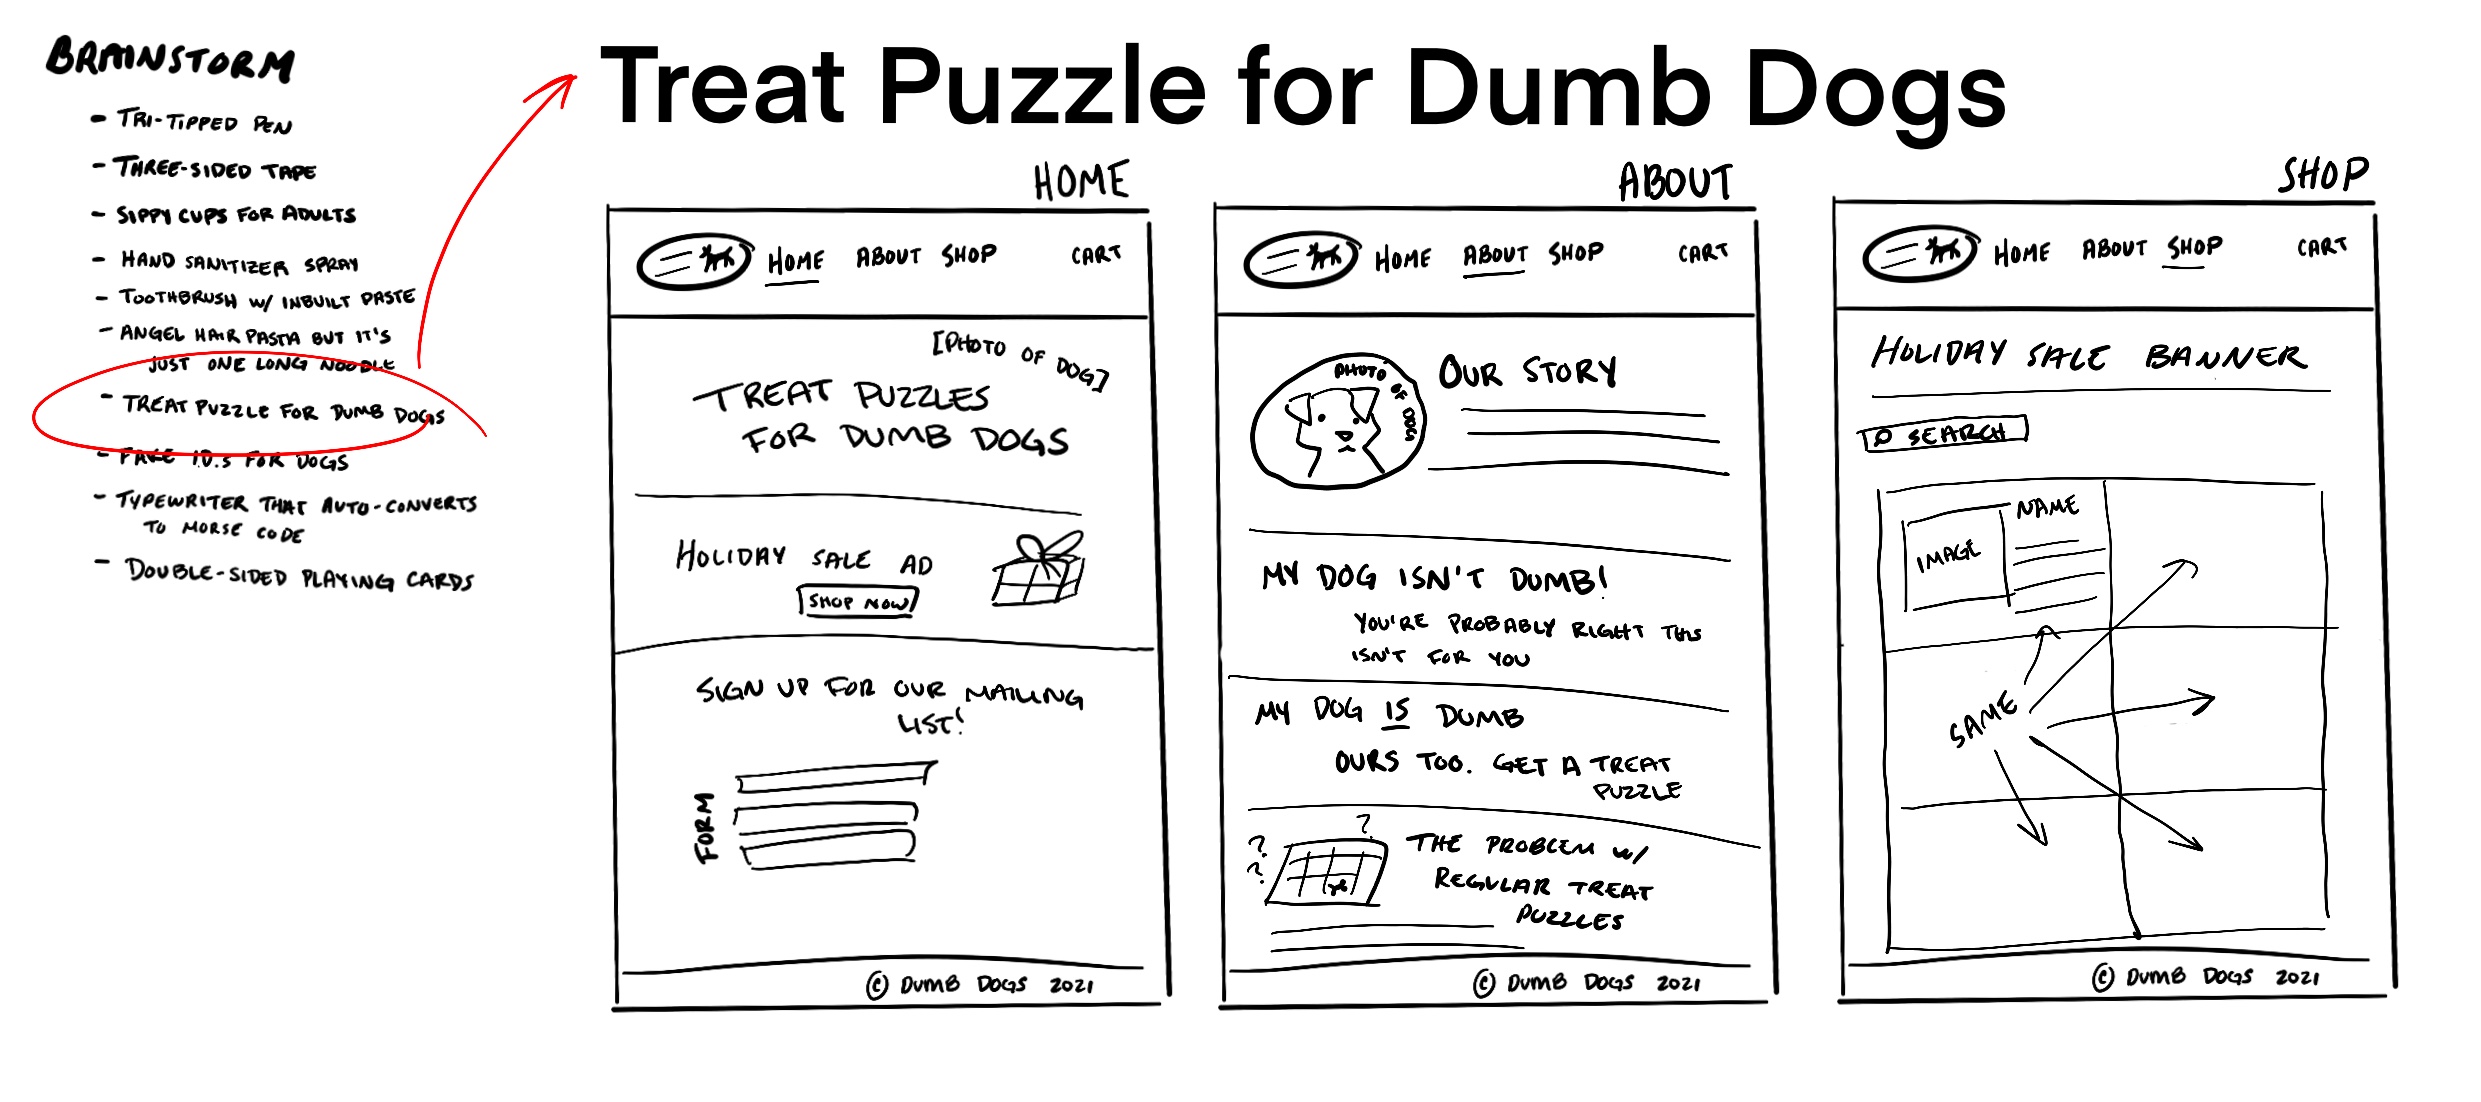 BRAINSTORM
- TRI-TIPPED PEN
- THREE-SIDED TAPE
- SIPPY CUPS FOR ADULTS
- HAND SANITIZER SPRAY
- TOOTHBRUSH W/ INBUILT PASTE
- ANGEL HAIR PASTA BUT IT'S
JUST ONE LONG NOODLE
- TREAT PUZZLE FOR DUMB DOGS
- FAKE I.D.s FOR DOGS
- TYPEWRITER THAT AUTO-CONVERTS
TO MORSE CODE
- DOUBLE-SIDED PLAYING CARDS
Treat Puzzle for Dumb Dogs
HOME
HOME ABOUT SHOP CART
[PHOTO OF DOG]
TREAT PUZZLES
FOR DUMB DOGS
HOLIDAY SALE AD
SHOP NOW
SIGN UP FOR OUR MAILING
LIST!
FORM
© DUMB DOGS 2021
ABOUT
HOME ABOUT SHOP CART
PHOTO OF DOG
OUR STORY
MY DOG ISN'T DUMB!
YOU'RE PROBABLY RIGHT THIS
ISN'T FOR YOU
MY DOG IS DUMB
OURS TOO. GET A TREAT
PUZZLE
? ? ?
THE PROBLEM W/
REGULAR TREAT
PUZZLES
© DUMB DOGS 2021
SHOP
HOME ABOUT SHOP CART
HOLIDAY SALE BANNER
SEARCH
IMAGE
NAME
SAME
© DUMB DOGS 2021